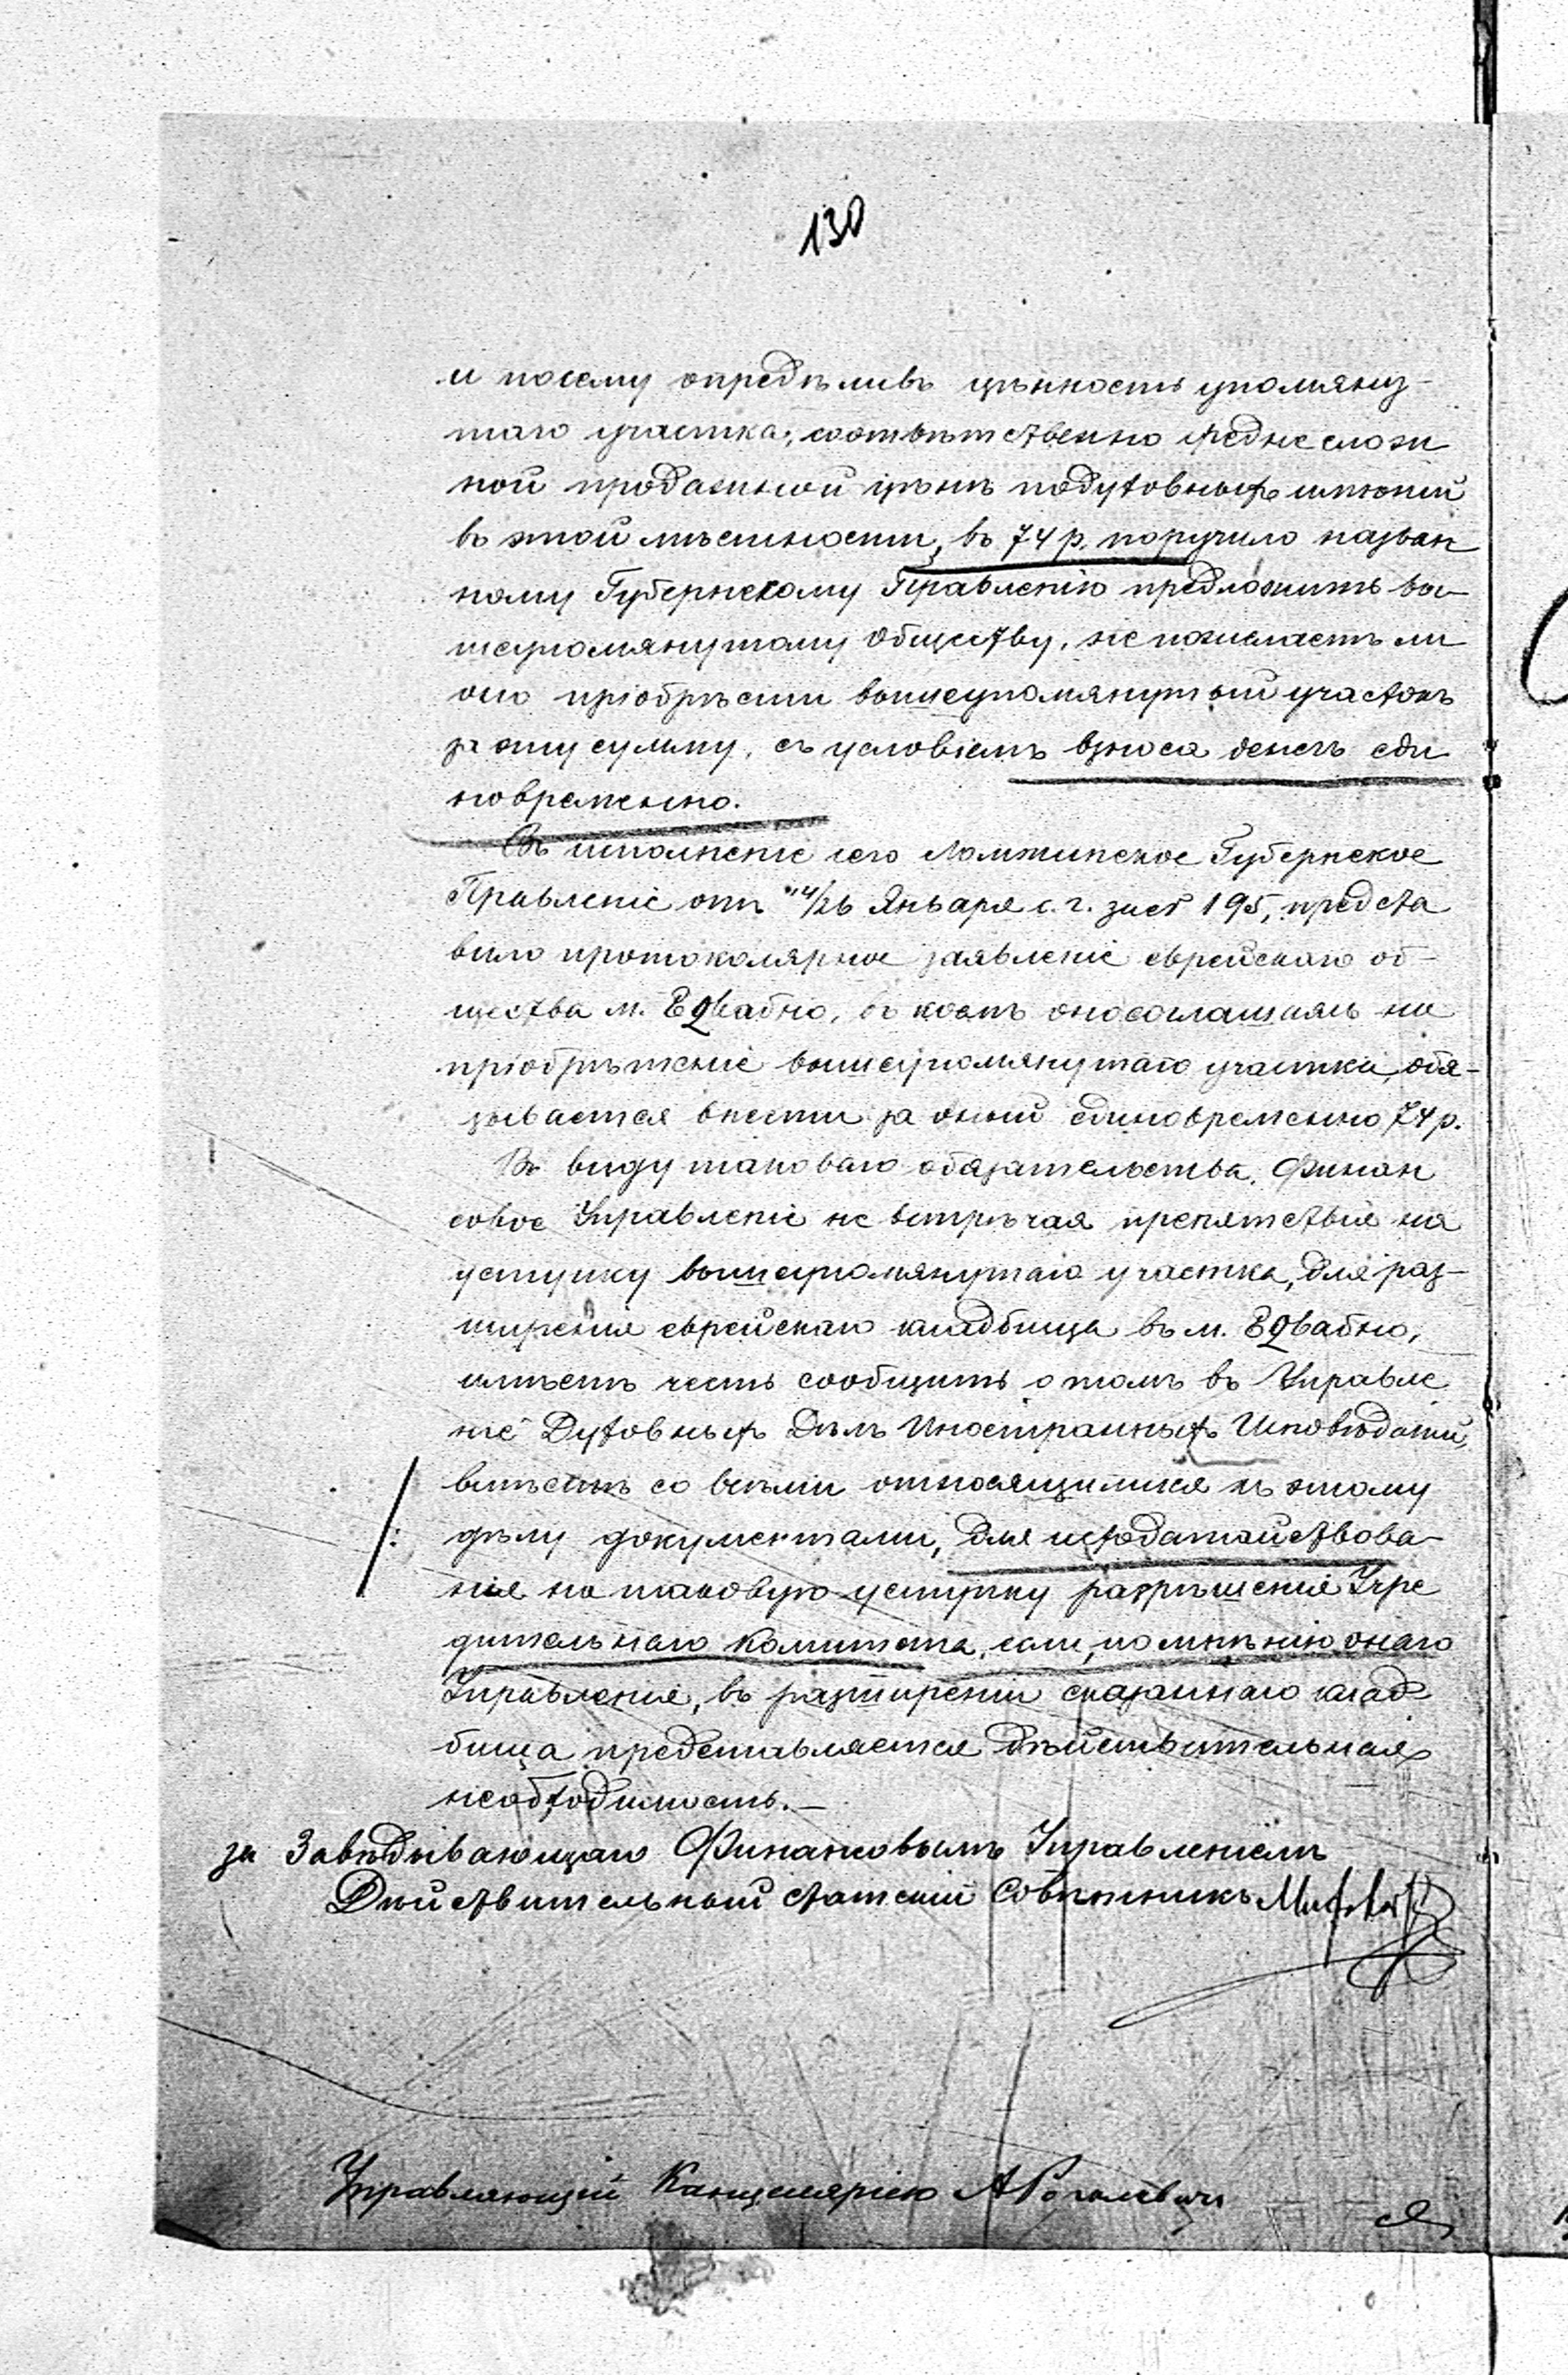 130
и посему опредѣливъ цѣнность упомяну-
таго участка, соотвѣтственно среднеслож
ной продажной цѣнѣ подуховныхъ имѣній
въ этой мѣстности, въ 74 р. поручило назван
ному Губернскому Правленію предложить вы-
шеупомянутому обществу, не пожелаетъ ли
оно пріобрѣсти вышеупомянутый участокъ
за эту сумму, съ условіемъ взноса денегъ еди
новременно.
Въ исполненіе сего Ломжинское Губернское
Правленіе отъ 14/26 Января с. г. за № 195, предста
вило протоколярное заявленіе еврейскаго об-
щества м. Едвабно, въ коемъ оно соглашаясь на
пріобрѣтеніе вышеупомянутаго участка, обя-
зывается внести за оный единовременно 74 р.
Въ виду таковаго обязательства, Финан
совое Управленіе не встрѣчая препятствія на
уступку вышеупомянутаго участка, для раз-
ширенія еврейскаго кладбища въ м. Едвабно,
имѣетъ честь сообщить о томъ въ Управле
ніе Духовныхъ Дѣлъ Иностранныхъ Исповѣданій,
вмѣстѣ со всѣми относящимися къ этому
дѣлу документами, для исходатайствова-
нія на таковую уступку разрѣшенія Учре
дительнаго Комитета, если, по мнѣнію онаго
Управленія, въ разширеніи сказаннаго клад
бища представляется дѣйствительная
необходимость.—
за Завѣдывающаго Финансовымъ Управленіемъ
Дѣйствительный Статскій Совѣтникъ
Управляющій Канцеляріею